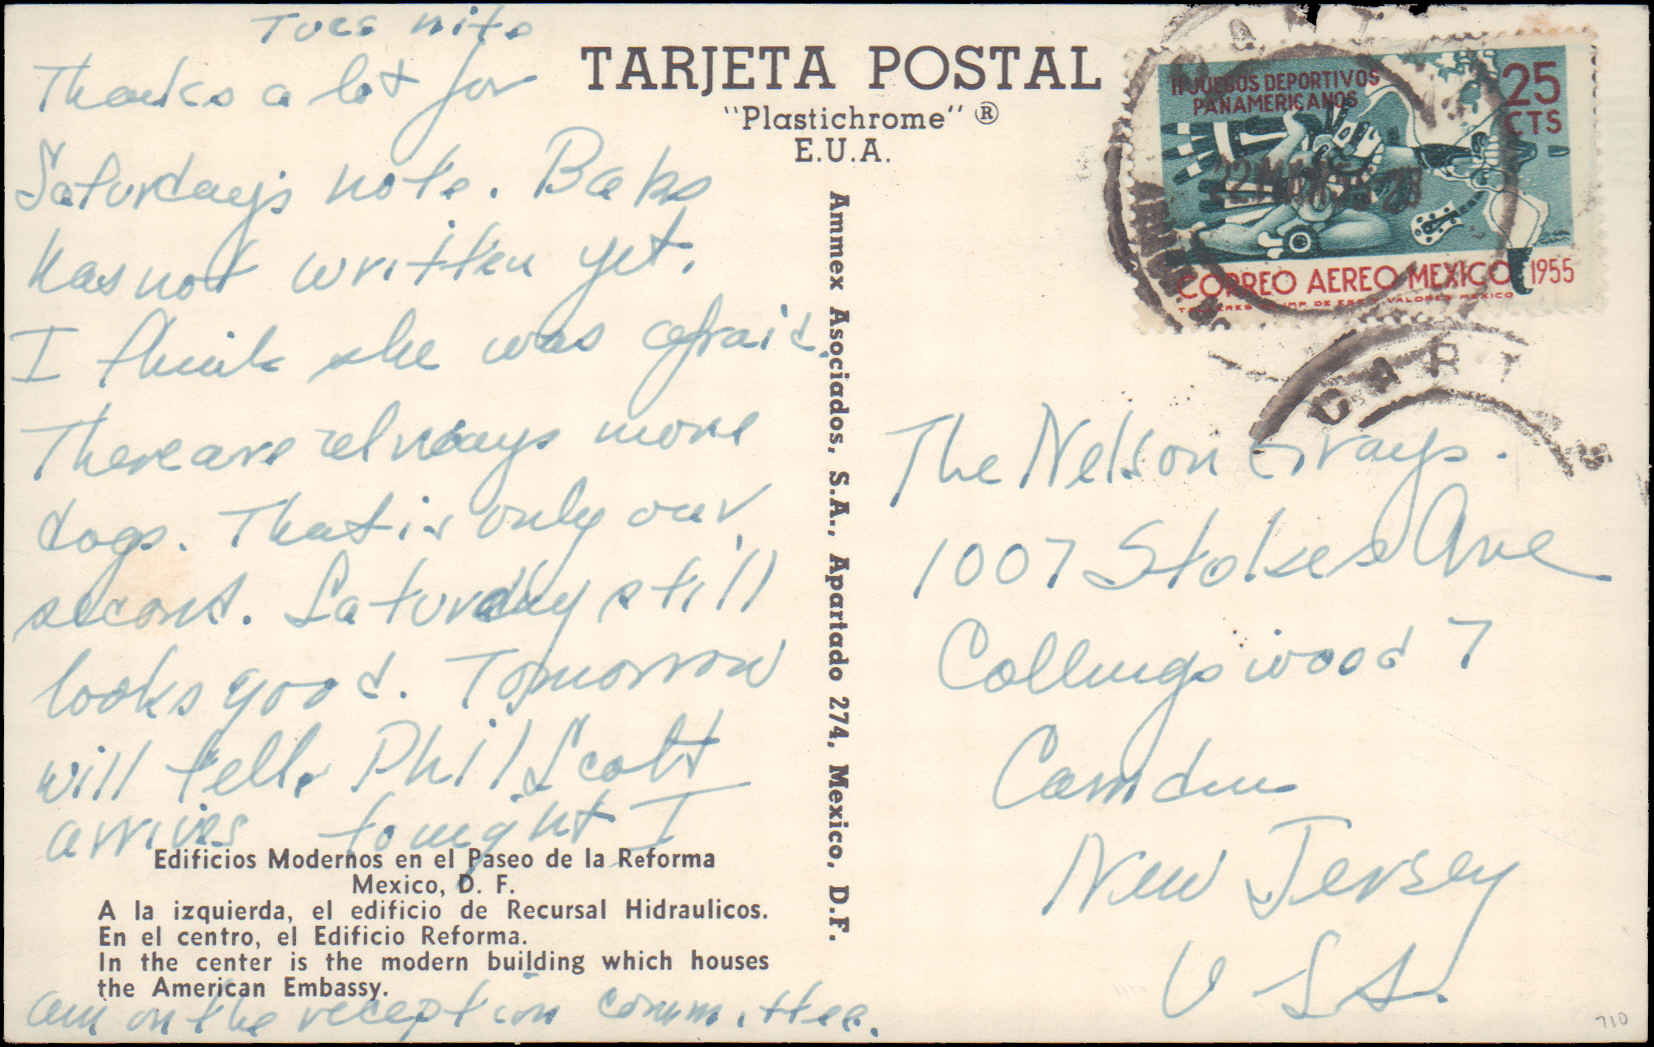 Tues nite
Thanks a lot for
Saturday's note. Babs
has not written yet.
I think she was afraid.
There are always more
dogs. That is only our
second. Saturday still
looks good. Tomorrow
will tell. Phil Scott
arrives tonight I
am on the reception committee.
TARJETA POSTAL
"Plastichrome" ®
E.U.A.
Ammex Asociados, S.A., Apartado 274, Mexico, D.F.
Edificios Modernos en el Paseo de la Reforma
Mexico, D. F.
A la izquierda, el edificio de Recursal Hidraulicos.
En el centro, el Edificio Reforma.
In the center is the modern building which houses
the American Embassy.
II JUEGOS DEPORTIVOS
PANAMERICANOS
25
CTS
CORREO AEREO MEXICO 1955
The Nelson Grays.
1007 Stokes Ave
Collingswood 7
Camden
New Jersey
U S A.
710